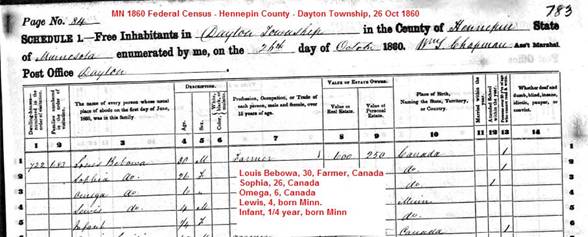 MN 1860 Federal Census - Hennepin County - Dayton Township, 26 Oct 1860
783
Page No. 84
SCHEDULE 1.—Free Inhabitants in Dayton Township in the County of Hennepin State
of Minnesota enumerated by me, on the 26th day of October 1860. Wm S Chapman Ass't Marshal.
Post Office Dayton
The name of every person whose usual place of abode on the first day of June, 1860, was in this family.
DESCRIPTION.
Age.
Sex.
Profession, Occupation, or Trade of each person, male and female, over 15 years of age.
VALUE OF ESTATE OWNED.
Value of Real Estate.
Value of Personal Estate.
Place of Birth, Naming the State, Territory, or Country.
Whether deaf and dumb, blind, insane, idiotic, pauper, or convict.
1 2 3 4 5 6 7 8 9 10 11 12 13 14
1 Louis Bebowa 30 M Farmer 100 250 Canada 1
2 Sophia do. 26 F do. 1
3 Omega do. 6 do.
4 Lewis do. 4 M Minn
5 Infant 1/4 F do.
Canada
Louis Bebowa, 30, Farmer, Canada
Sophia, 26, Canada
Omega, 6, Canada
Lewis, 4, born Minn.
Infant, 1/4 year, born Minn